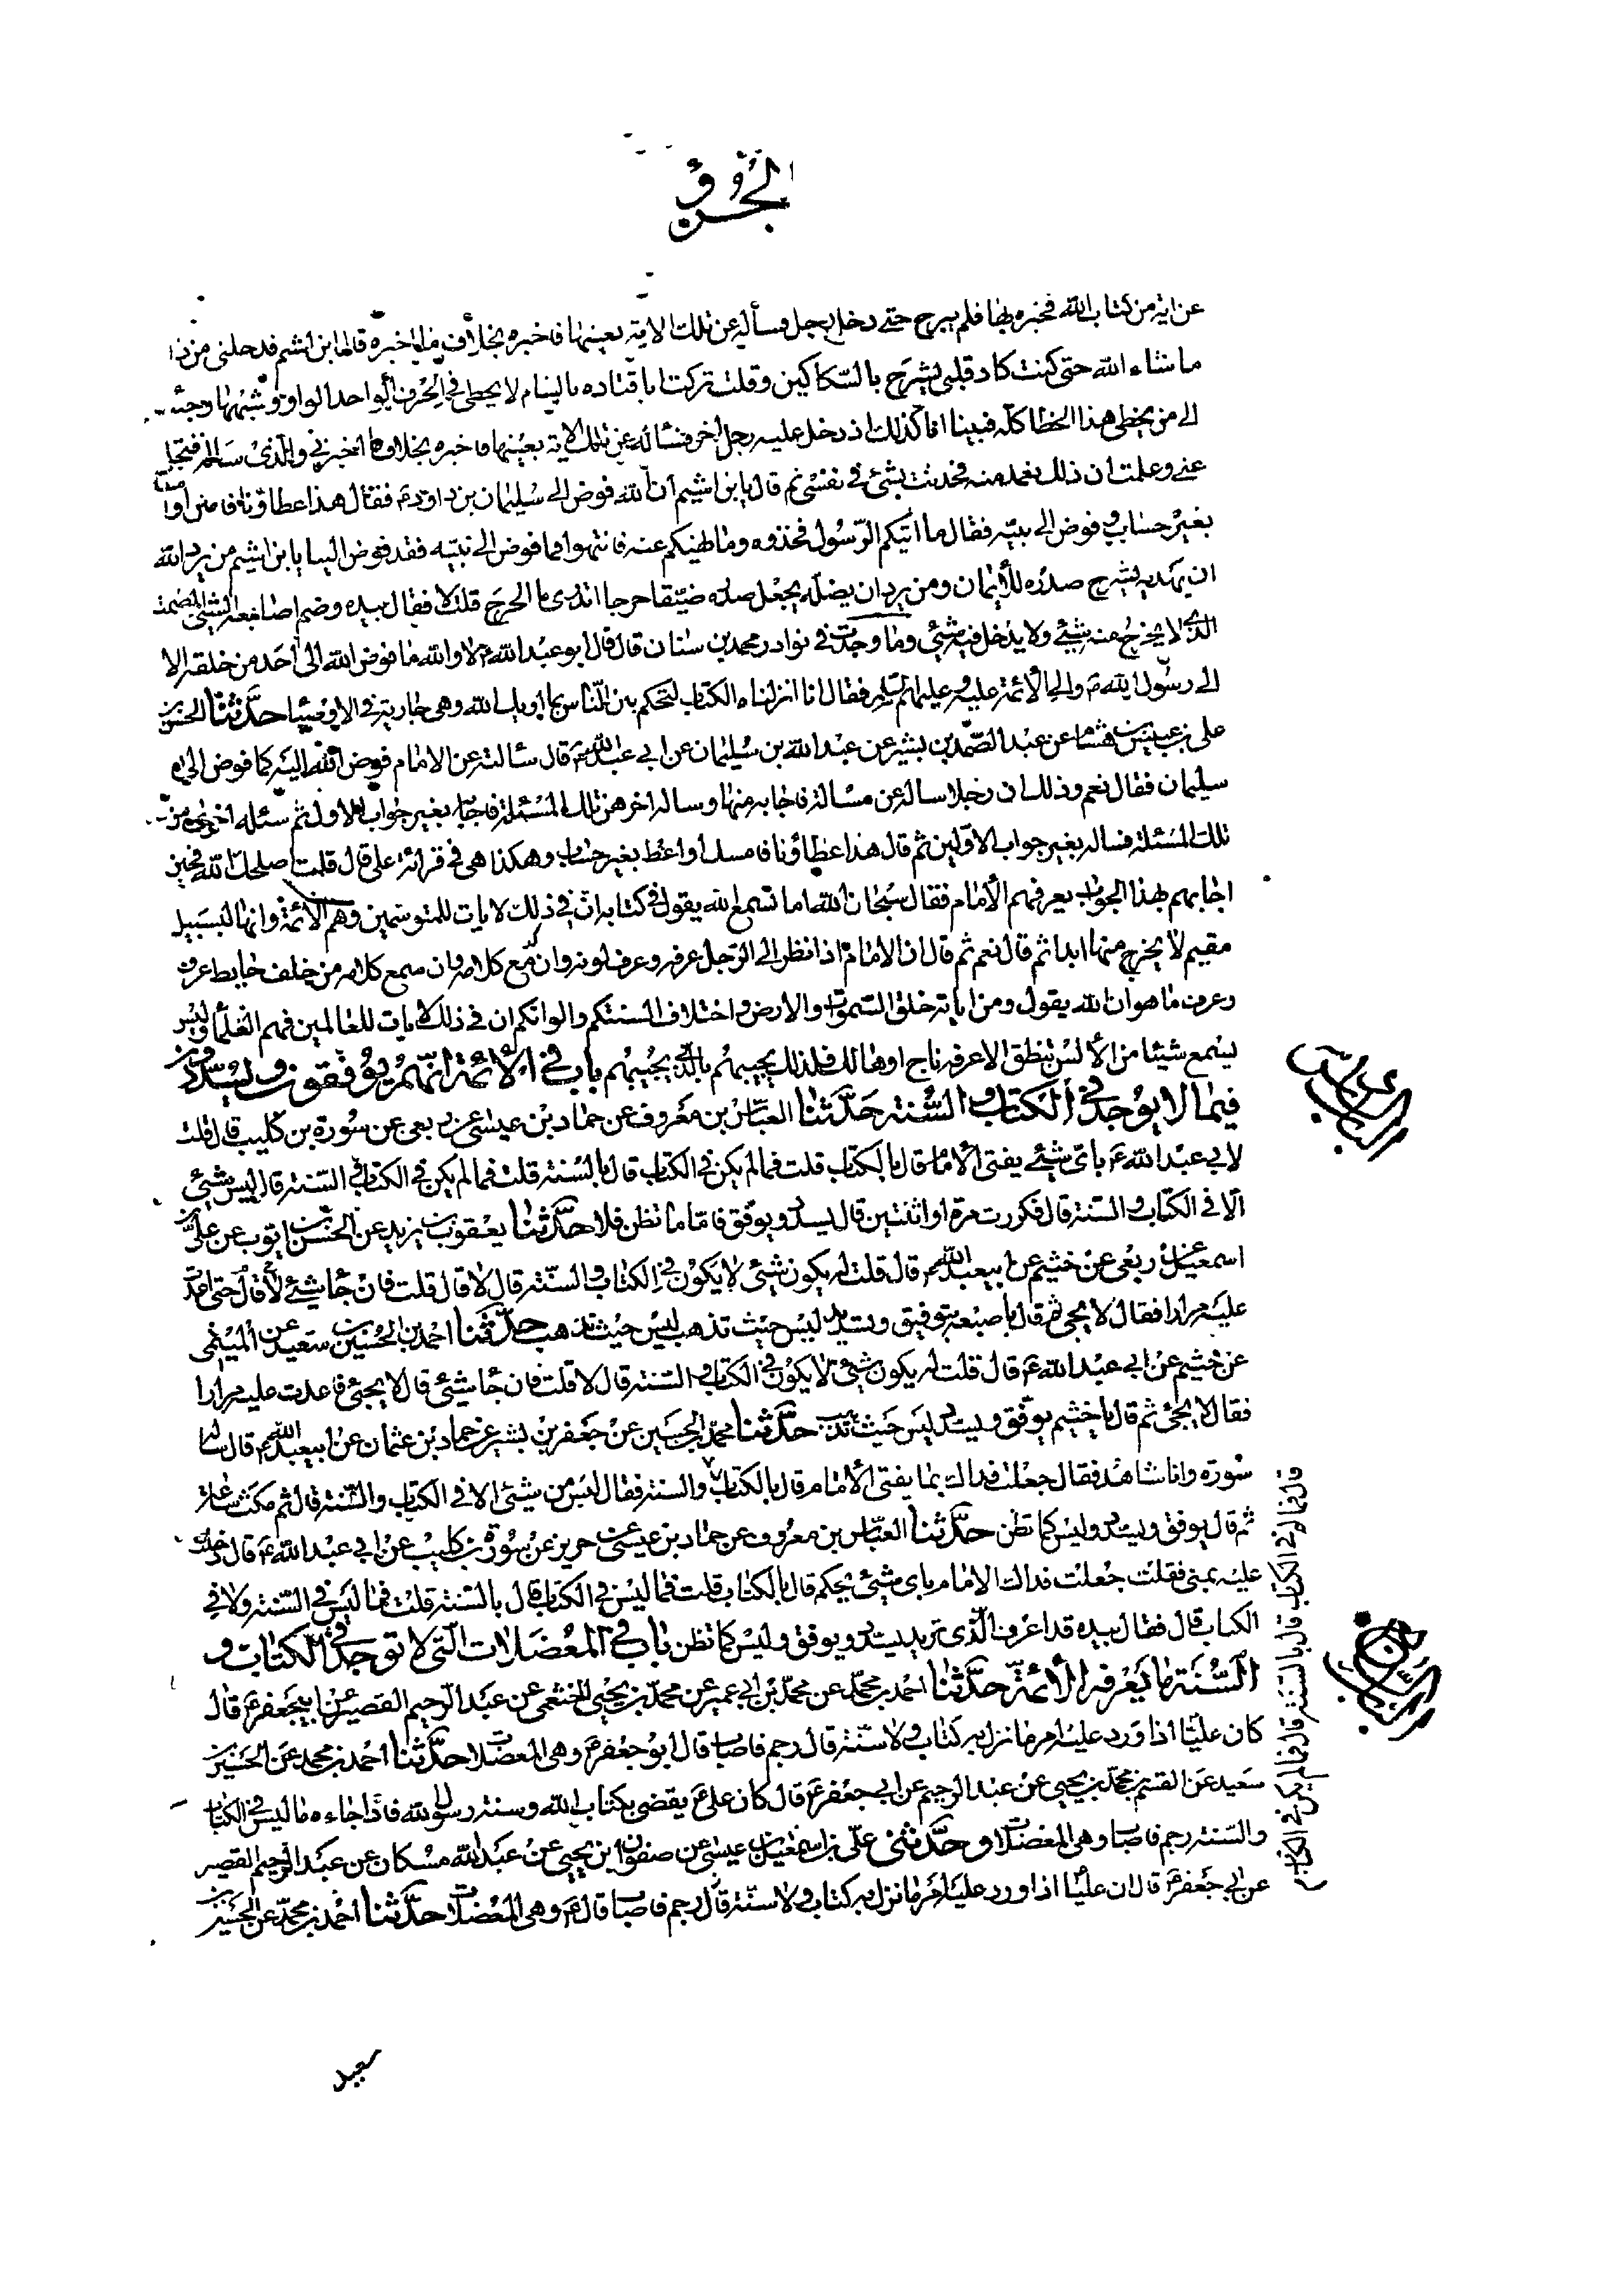 الجزؤ
عن اية من كتاب الله فخبره بها فلم يبرح حتى دخل رجل وسأله عن تلك الاية بعينها فاخبره بخلاف ما اخبره قال ابن اشيم فدخلنى من ذا
ما شاء الله حتى كنت كاد قلبى يشرح بالسكاكين وقلت تركت ابا قتاده بالشام لا يخطى فى الحرف الواحد الواو وشبهها وجئت
الى من يخطى هذا الخطا كله فبينا انا كذلك اذ دخل عليه رجل اخر فسئاله عن تلك الاية بعينها فاخبره بخلاف ما اخبرنى والذى ساله فتجلى
عنى وعلمت ان ذلك تعمد منه فحدثت بشئ فى نفسى ثم قال يابن اشيم ان الله فوض الى سليمان بن داود ع فقال هذا عطاؤنا فامنن او امسك
بغير حساب وفوض الى نبيه فقال ما اتيكم الرسول فخذوه وما نهيكم عنه فانتهوا فما فوض الى نبيه فقد فوض الينا يابن اشيم من يرد الله
ان يهديه يشرح صدره للأيمان ومن يرد ان يضله يجعل صدره ضيقا حرجا اتدرى ما الحرج قلت لا فقال بيده وضم اصابعه الشئ المصمت
الذى لا يخرج عنه شئ ولا يدخل فيه شئ وما وجدت فى نوادر محمد بن سنان قال قال ابو عبد الله ع لا والله ما فوض الله الى احد من خلقه الا
الى رسول الله ص والى الأئمة عليه وعليهم السلام فقال انا انزلناه الكتاب لتحكم بين الناس بما اريك الله وهى جارية فى الاوصيا حدثنا الحسن بن
على بن عبيس بن هشام عن عبد الصمد بن بشير عن عبد الله بن سليمان عن ابى عبد الله ع قال سئالته عن الامام فوض الله اليه كما فوض الى
سليمان فقال نعم وذلك ان رجلا ساله عن مسالة فاجابه منها وساله اخر عن تلك المسئلة فاجابه بغير جواب الاول ثم سئله اخر عن
تلك المسئلة فساله بغير جواب الاولين ثم قال هذا عطاؤنا فامسك او اعط بغير حساب وهكذا هى فى قرائة على قال قلت اصلحك الله فحين
اجابهم بهذا الجواب يعرفهم الأمام فقال سبحان الله اما تسمع الله يقول فى كتابه ان فى ذلك لايات للمتوسمين وهم الأئمة وانها لبسبيل
مقيم لا يخرج منها ابدا ثم قال نعم ثم قال ان الامام اذا نظر الى الرجل عرفه وعرف لونه وان سمع كلامه وان سمع كلامه من خلف حايط عرفه
وعرف ما هو ان الله يقول ومن اياته خلق السموات والارض واختلاف السنتكم والوانكم ان فى ذلك لايات للعالمين فهم العلما وليس
يسمع شيئا من الألسن تنطق الا عرفه ناج او هالك فلذلك يجيبهم بالذى يجيبهم باب فى الأئمة انهم يوفقون ويسددون
فيما لا يوجد فى الكتاب والسنة حدثنا العباس بن معروف عن حماد بن عيسى عن ربعى عن سورة بن كليب قال قلت
لابى عبد الله ع باى شئ يفتى الأمام قال بالكتاب قلت فما لم يكن فى الكتاب قال بالسنة قلت فما لم يكن فى الكتاب والسنة قال ليس شئ
الا فى الكتاب والسنة قال فكررت مرة او اثنتين قال يسدد ويوفق فاما ما تظن فلا حدثنا يعقوب بن يزيد عن الحسن بن ايوب عن على بن
اسمعيل عن ربعى عن خثيم عن ابيعبد الله ع قال قلت له يكون شئ لا يكون فى الكتاب والسنة قال لا قال قلت فان جاء شئ لا قال حتى اعدت
عليه مرارا فقال لا يجى ثم قال باصبعه بتوفيق وتسديد ليس حيث تذهب ليس حيث تذهب حدثنا احمد بن الحسين بن سعيد عن الميثمى
عن خثيم عن ابى عبد الله ع قال قلت له يكون شئ لا يكون فى الكتاب والسنة قال لا قلت فان جا شئ قال لا يجئ فاعدت عليه مرارا
فقال لا يجئ ثم قال يا خثيم يوفق ويسدد ليس حيث تذهب حدثنا محمد بن الحسين عن جعفر بن بشير عن حماد بن عثمان عن ابيعبد الله ع قال ساله
سورة وانا شاهد فقال جعلت فداك بما يفتى الأمام قال بالكتاب والسنة فقال ليس من شئ الا فى الكتاب والسنة قال ثم مكث ساعة
ثم قال يوفق ويسدد وليس كما تظن حدثنا العباس بن معروف عن حماد بن عيسى عن حريز عن سورة بن كليب عن ابى عبد الله ع قال دخلت
عليه بمنى فقلت جعلت فداك الامام باى شئ يحكم قال بالكتاب قلت فما ليس فى الكتاب قال بالسنة قلت فما ليس فى السنة ولا فى
الكتاب قال فقال بيده قد اعرف الذى تريد يسدد ويوفق وليس كما تظن باب فى المعضلات التى لا توجد فى الكتاب و
السنة ما يعرفه الأئمة حدثنا احمد بن محمد عن محمد بن ابى عمير عن محمد بن يحيى الخثعمى عن عبد الرحيم القصير عن ابيجعفر ع قال
كان عليا اذا ورد عليه امر ما نزل به كتاب ولا سنة قال رجم فاصاب قال ابو جعفر ع وهى المعضلات حدثنا احمد بن محمد عن الحسين بن
سعيد عن القسم بن محمد بن يحيى عن عبد الرحيم عن ابى جعفر ع قال كان على ع يقضى بكتاب الله وسنة رسول الله فاذا جاءه ما ليس فى الكتاب
والسنة رجم فاصاب وهى المعضلات وحدثنى على بن اسمعيل بن عيسى عن صفوان بن يحيى عن عبد الله مسكان عن عبد الرحيم القصير
عن ابى جعفر ع قال ان عليا اذا ورد عليه امر ما نزل به كتاب ولا سنة قال رجم فاصاب قال ع وهى المعضلات حدثنا احمد بن محمد عن الحسين بن
الباب
الباب
سعيد